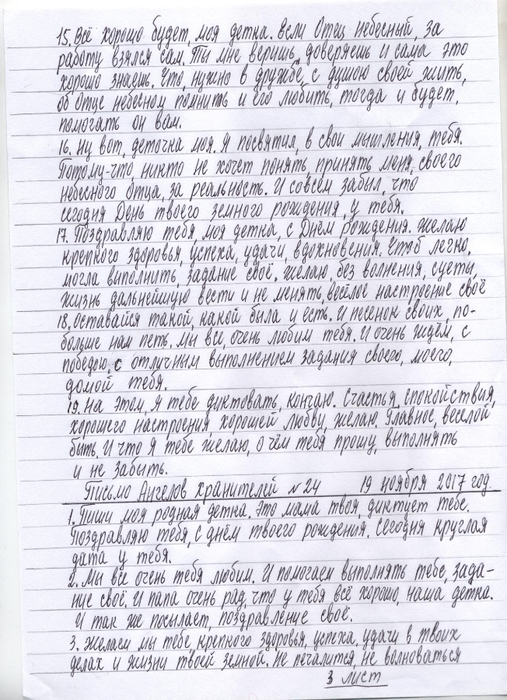 15. Всё хорошо будет, моя детка. если Отец небесный, за
работу взялся сам. Ты мне веришь, доверяешь и сама это
хорошо знаешь. Что, нужно в дружбе, с душою своей жить,
об Отце небесном помнить и его любить, тогда и будет,
помогать он вам.
16. Ну вот, деточка моя. Я посвятил, в свои мышления, тебя.
Потому-что никто не хочет понять, принять меня, своего
небесного Отца, за реальность. И совсем забыл, что
сегодня День твоего земного рождения, у тебя.
17. Поздравляю тебя, моя детка, с Днём рождения. желаю
крепкого здоровья, успеха, удачи, вдохновения. Чтоб легко,
могла выполнить, задание своё. желаю, без волнения, суеты,
жизнь дальнейшую вести и не менять, весёлое настроение своё
18. Оставайся такой, какой была и есть. И песенок своих, по-
больше нам петь. мы все, очень любим тебя. И очень ждём, с
победою, с отличным выполнением задания своего, моего,
домой тебя.
19. На этом, я тебе диктовать, кончаю. Счастья, спокойствия,
хорошего настроения хорошей любви, желаю. Главное, веселой
быть. И что я тебе желаю, о чём тебя прошу, выполнять
и не забыть.
Письмо Ангелов хранителей №24 19 ноября 2017 год
1. Пиши моя родная детка. Это мама твоя, диктует тебе.
Поздравляю тебя, с днём твоего рождения. Сегодня круглая
дата у тебя.
2. Мы все очень тебя любим. И помогаем выполнять тебе, зада-
ние своё. И папа очень рад, что у тебя всё хорошо, наша детка.
И так же посылает, поздравление своё.
3. желаем мы тебе, крепкого здоровья, успеха, удачи в твоих
делах и жизни твоей земной. Не печалится, не волноваться
3 лист